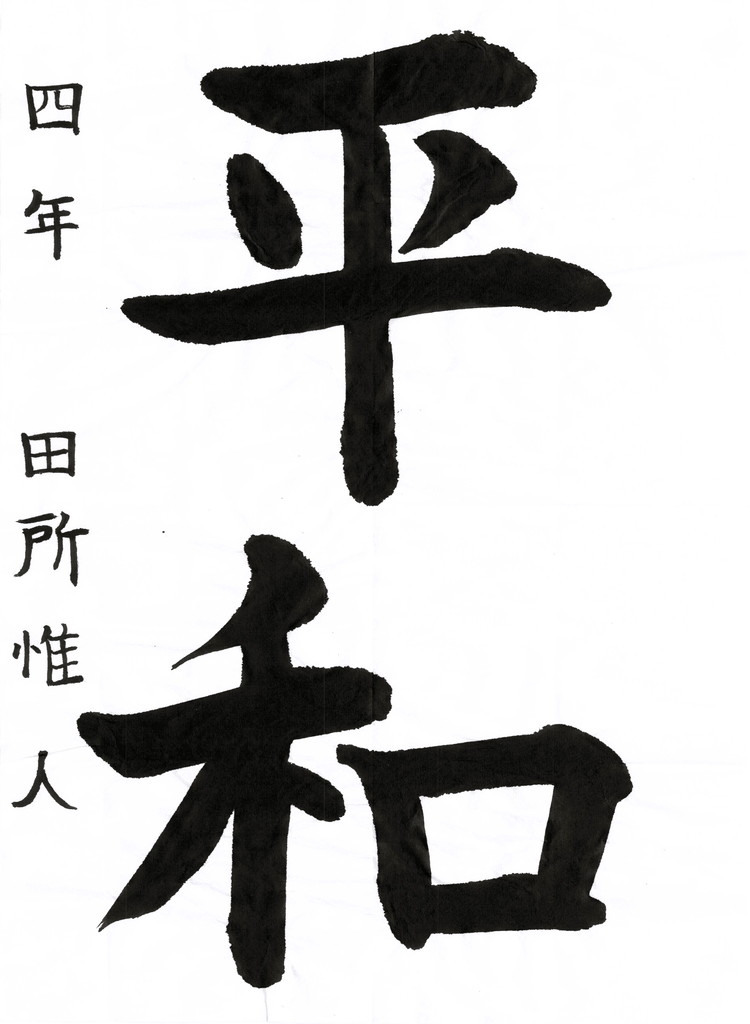 平和
四年 田所惟人